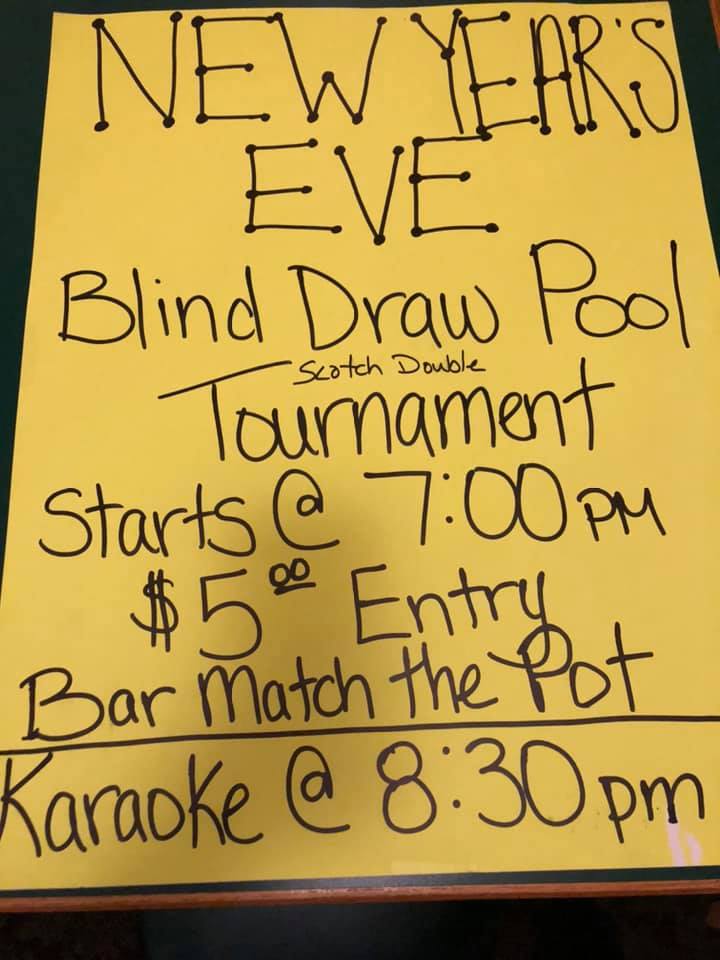 NEW YEAR'S
EVE
Blind Draw Pool
Scotch Double
Tournament
Starts @ 7:00 PM
$5.00 Entry
Bar Match the Pot
Karaoke @ 8:30 pm